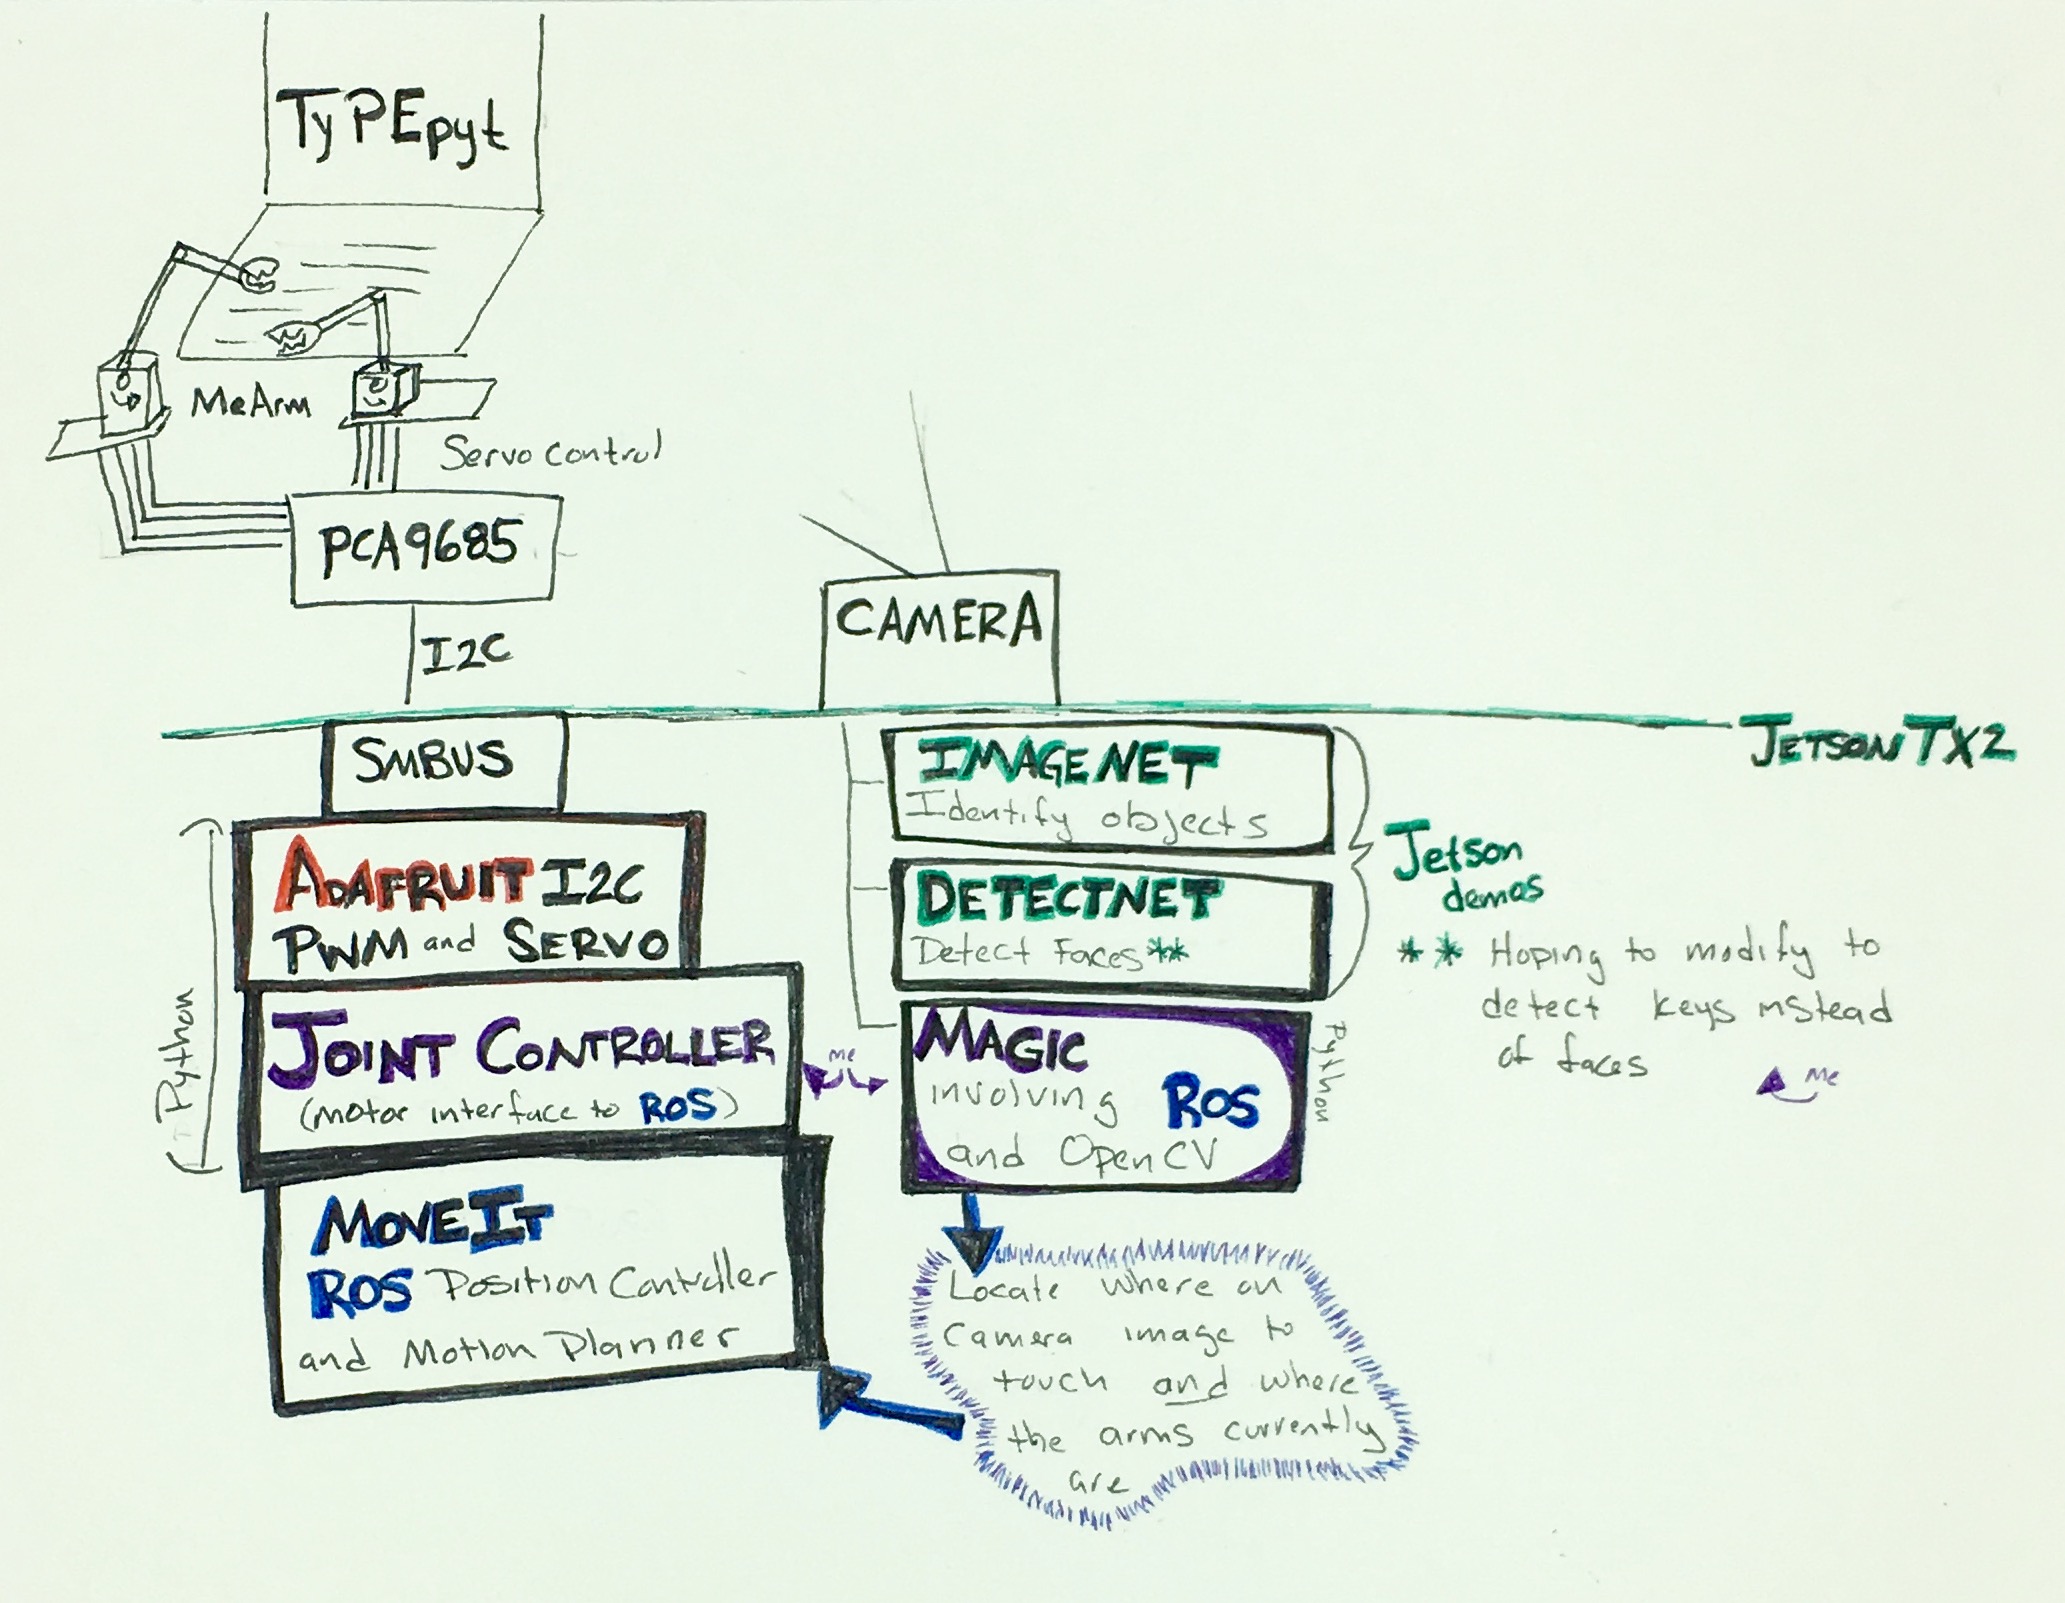 TyPEpyt
MeArm
Servo control
PCA9685
I2C
CAMERA
JETSON TX2
SMBUS
ADAFRUIT I2C
PWM and SERVO
JOINT CONTROLLER
(motor interface to ROS)
Python
MOVEIT
ROS Position Controller
and Motion Planner
me
IMAGENET
Identify objects
DETECTNET
Detect Faces**
Jetson
demos
** Hoping to modify to
detect keys instead
of faces
me
MAGIC
involving ROS
and OpenCV
Python
Locate where on
camera image to
touch and where
the arms currently
are